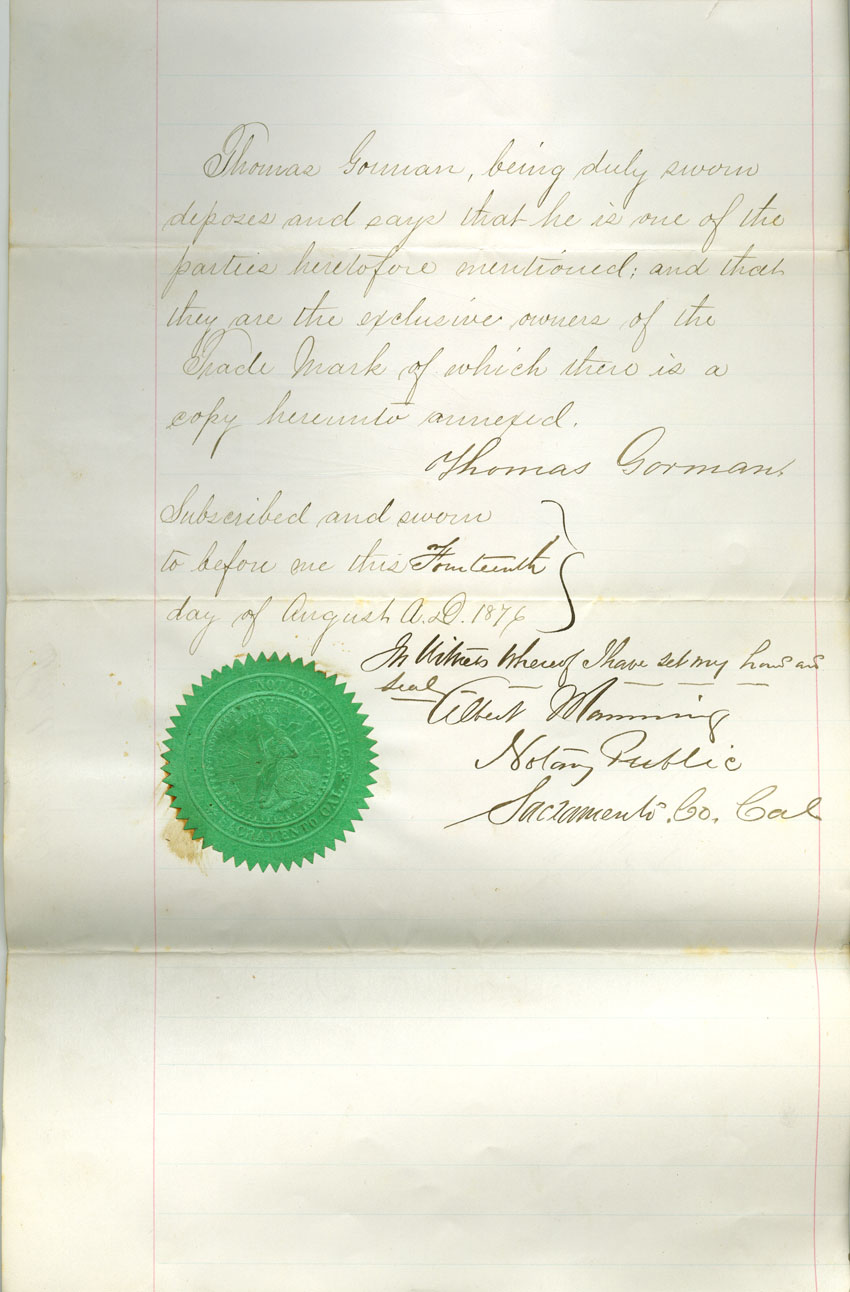 Thomas Gorman, being duly sworn
deposes and says that he is one of the
parties heretofore mentioned; and that
they are the exclusive owners of the
Trade Mark of which there is a
copy hereunto annexed.
Thomas Gorman.
Subscribed and sworn
to before me this Fourteenth
day of August A.D. 1876
In Witness Whereof I have set my hand and
seal
Albert Manning
Notary Public
Sacramento. Co. Cal
NOTARY PUBLIC
SACRAMENTO CAL.